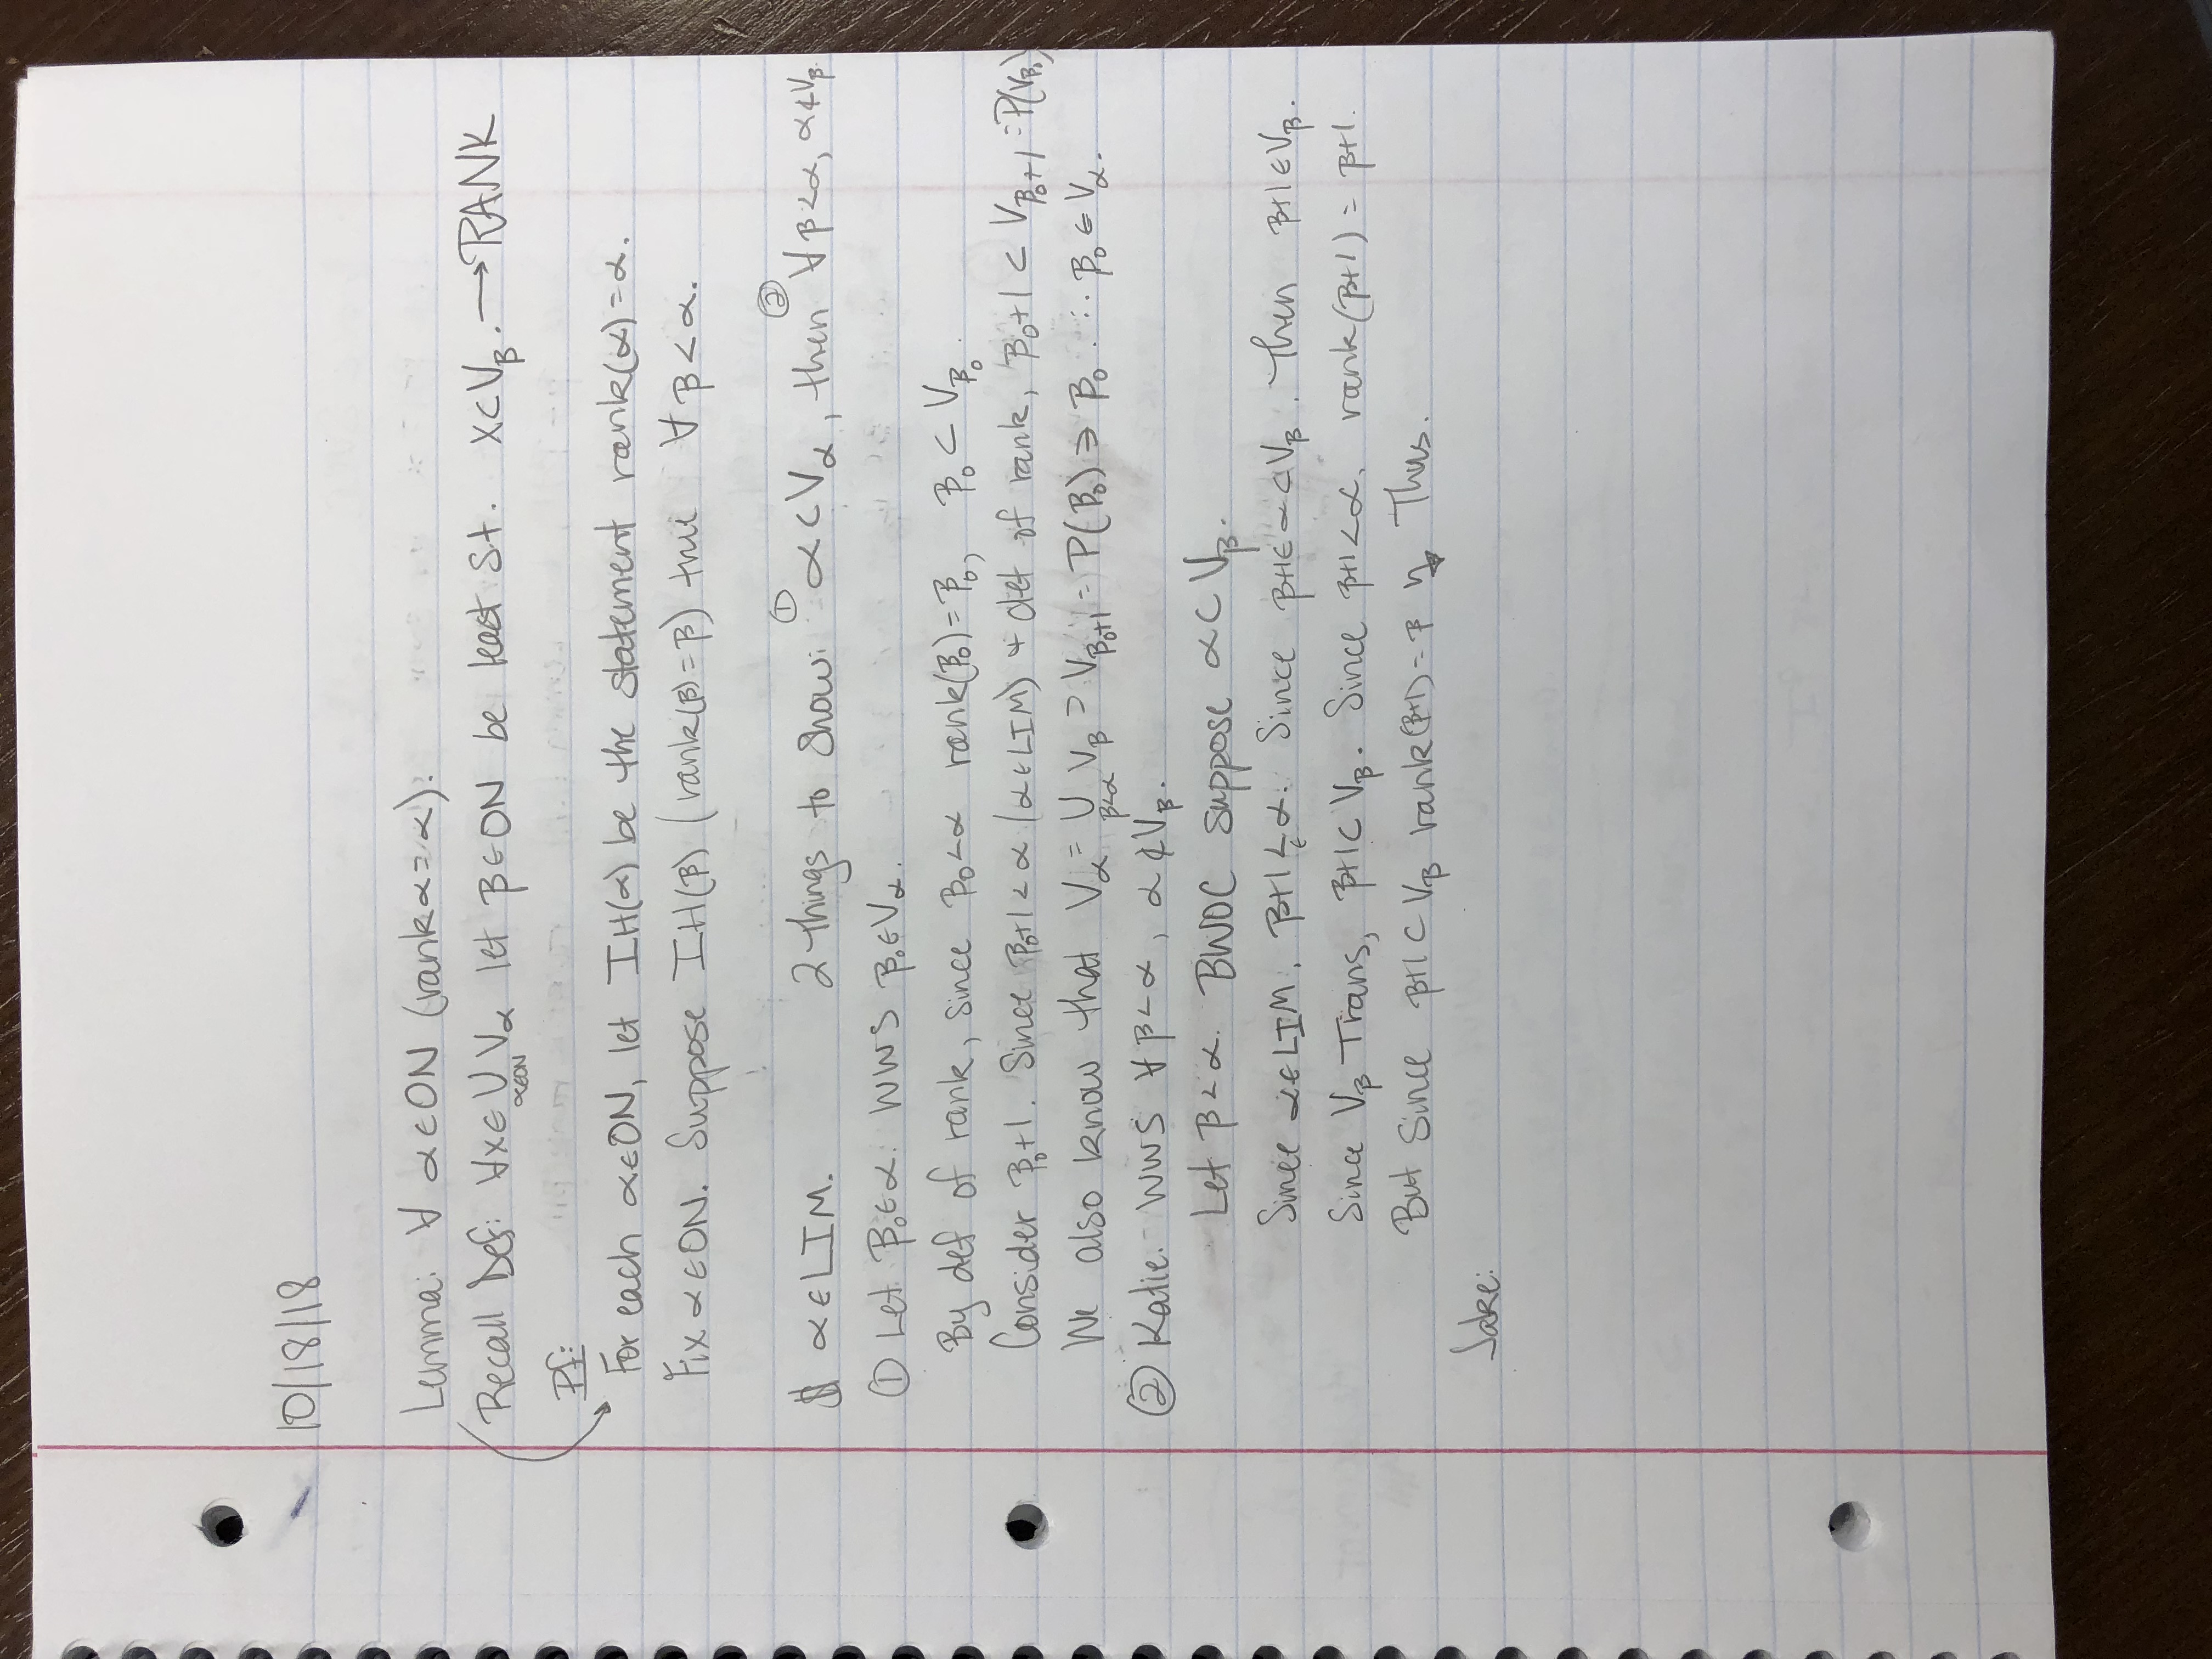 10/18/18
Lemma: ∀ α∈ON (rank α = α).
Recall Def: ∀x∈ ∪_{α∈ON} V_α let β∈ON be least st. x⊂V_β. → RANK
Pf:
For each α∈ON, let IH(α) be the statement rank(α)=α.
Fix α∈ON. Suppose IH(β) (rank(β)=β) true ∀ β<α.
$ α∈LIM. 2 things to show: ① α⊂V_α, then ② ∀β<α, α⊄V_β.
① Let β₀∈α. WWS β₀∈V_α.
By def of rank, since β₀<α rank(β₀)=β₀, β₀ ⊂ V_{β₀}.
Consider β₀+1. Since β₀+1<α (α∈LIM) + def of rank, β₀+1 ⊂ V_{β₀+1} = P(V_{β₀})
We also know that V_α = ∪_{β<α} V_β ⊃ V_{β₀+1} = P(β₀) ∋ β₀ ∴ β₀ ∈ V_α.
② Katie. WWS ∀β<α, α⊄V_β.
Let β<α. BWOC suppose α⊂V_β.
Since α∈LIM, β+1 <_∈ α. Since β+1∈α⊂V_β. Then β+1∈V_β.
Since V_β Trans, β+1⊂V_β. Since β+1<α, rank(β+1) = β+1.
But since β+1⊂V_β rank(β+1)=β ↯ Thus.
Jake: